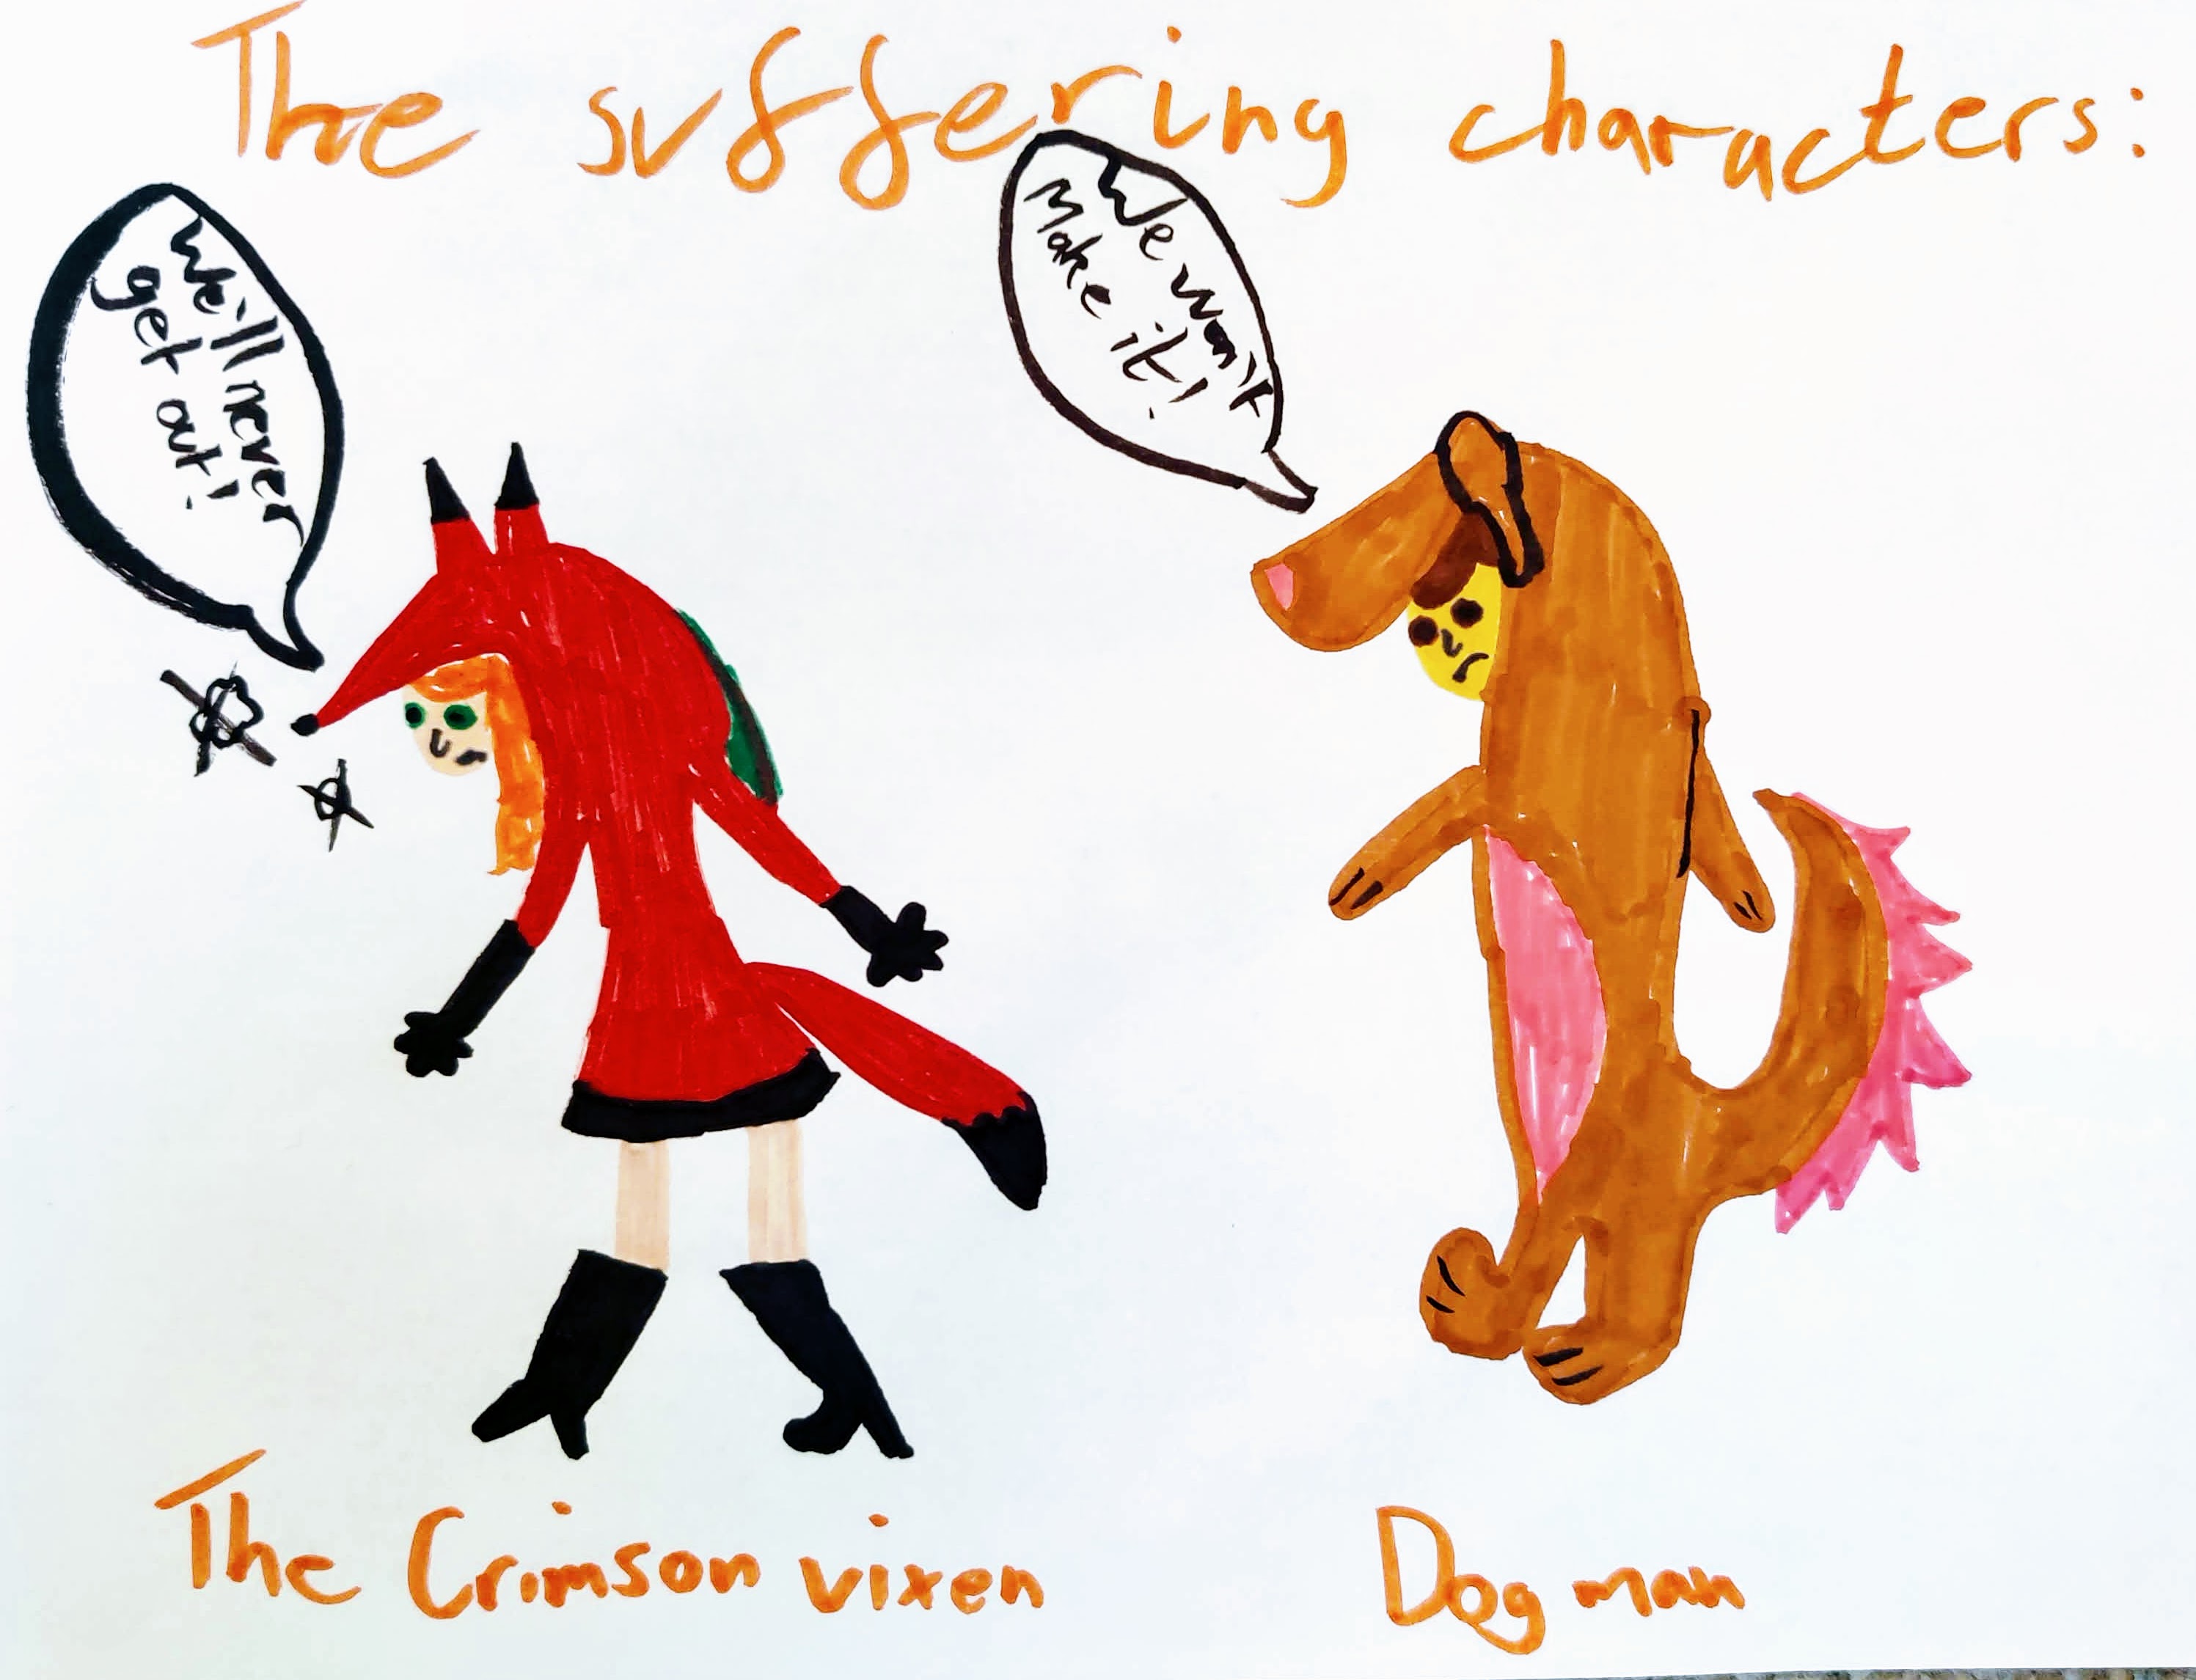 The suffering characters:
We'll never
get out!
We won't
Make it!
The Crimson vixen
Dog man